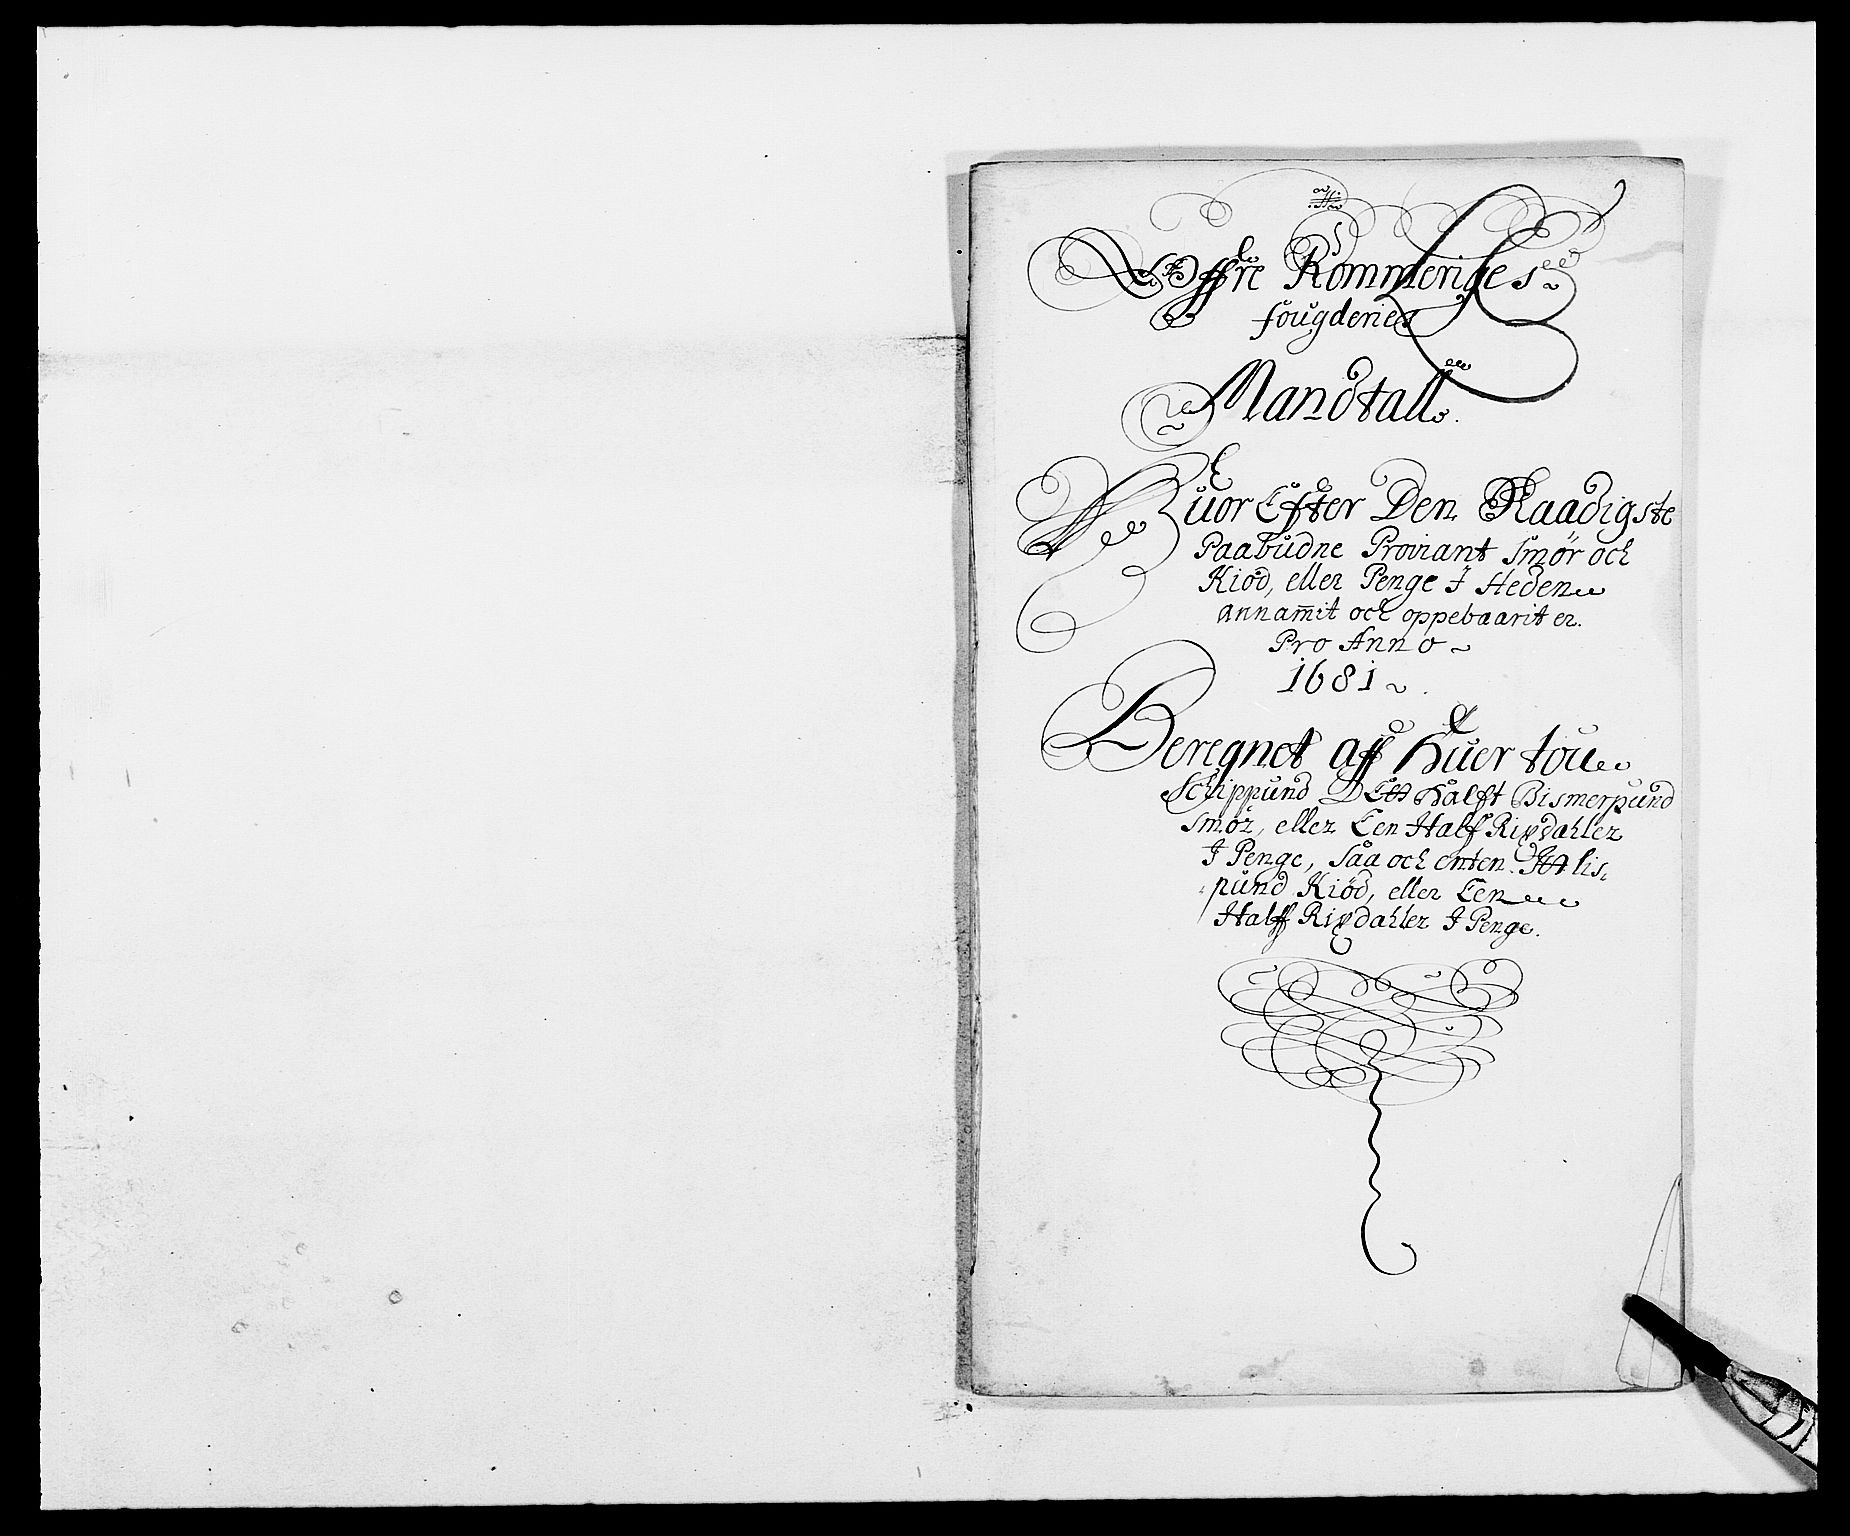 Øffre Rommeriges
fougderies
Mandtall.
Huor Efter Den Naadigste
Paabudne Proviant Smör och
Kiöd, eller Penge I Heden
annam̅it och oppebaarit er.
Pro Anno
1681
Beregnet aff Huer tou
Schippund Ett Halft Bismerpund
Smör, eller Een Half Rixdahler
I Penge, Saa och enten Itt lis,
pund Kiöd, eller Een
Halff Rixdahler I Penge.